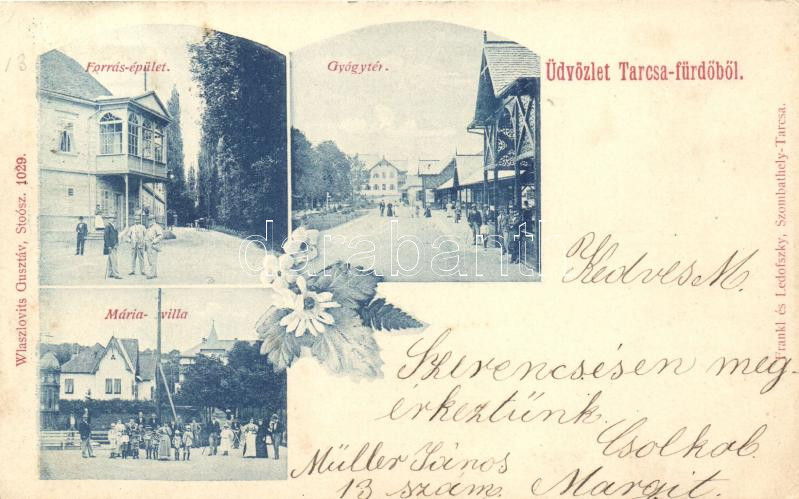 13
Forrás-épület.
Gyógytér.
Üdvözlet Tarcsa-fürdőből.
Mária-villa
Wlaszlovits Gusztáv, Stoósz. 1029.
Frankl és Ledofszky, Szombathely-Tarcsa.
darabanth
Kedves M.
Szerencsésen meg-
érkeztünk.
Csolkol
Müller János
13 szam. Margit.